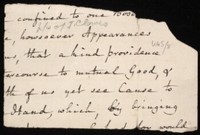 confined to one Body
, howsoever Appearances
us, that a kind providence
ercourse to mutual Good, of
th of us yet see Cause to
Hand, which, by bringing
would